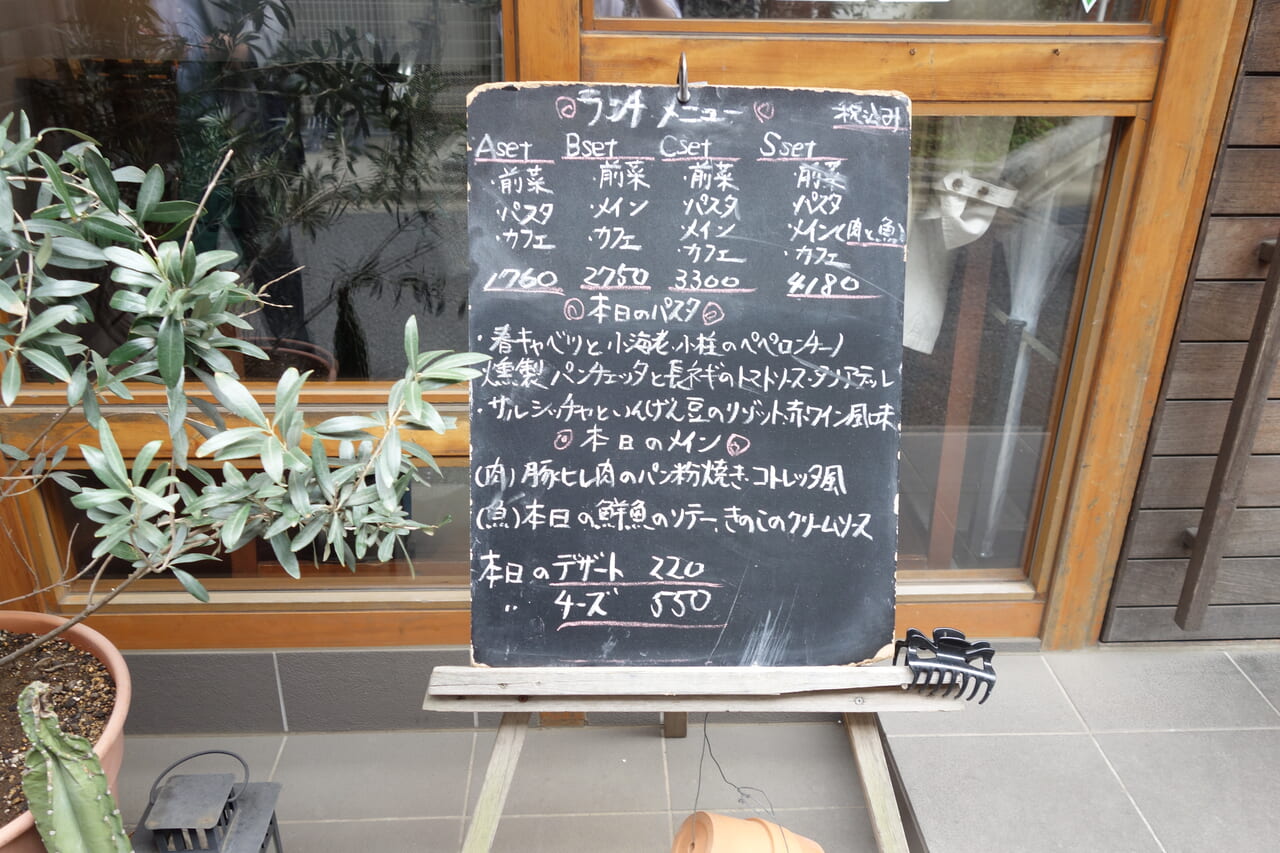 ランチメニュー 税込み
Aset Bset Cset Sset
・前菜 ・前菜 ・前菜 ・前菜
・パスタ ・メイン ・パスタ ・パスタ
・カフェ ・カフェ ・メイン ・メイン(肉と魚)
・カフェ ・カフェ
1760 2750 3300 4180
本日のパスタ
・春キャベツと小海老、小柱のペペロンチーノ
・燻製パンチェッタと長ネギのトマトソース・タリアテッレ
・サルシッチャといんげん豆のリゾット、赤ワイン風味
本日のメイン
(肉)豚ヒレ肉のパン粉焼き、コトレッタ風
(魚)本日の鮮魚のソテー、きのこのクリームソース
本日のデザート 220
〃 チーズ 550